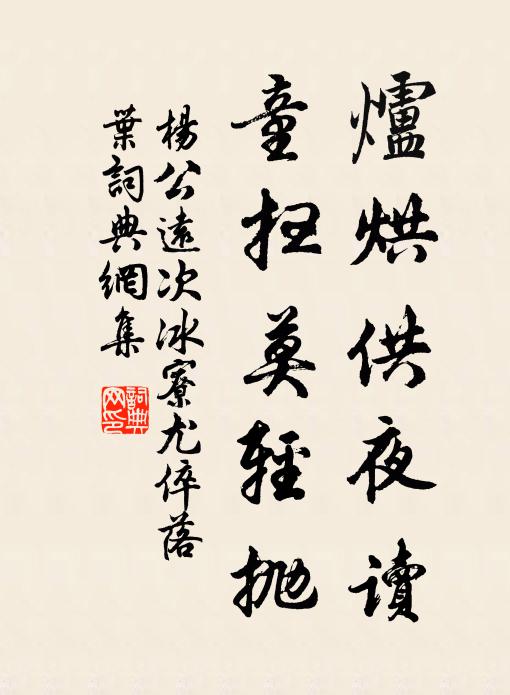 爐烘供夜讀
童扫莫輕抛
楊公遠次冰寮尤倅落
葉詞典網集
詞典
网印